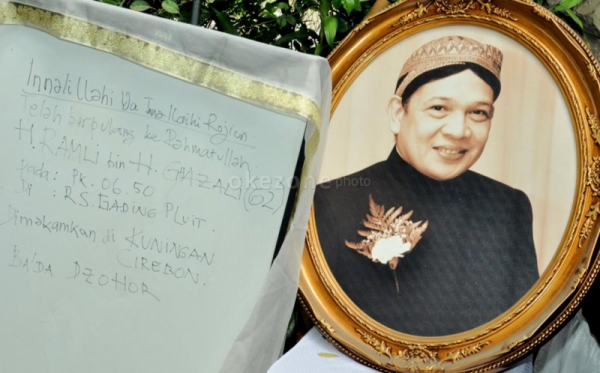 Innalillahi Wa Innailaihi Rojiun
Telah berpulang ke Rahmatullah
H. RAMLI bin H. GHAZALI (62)
pada : PK. 06.50
Di : RS. GADING PLUIT.
Dimakamkan di KUNINGAN
CIREBON.
BA'DA DZOHOR
okezone photo